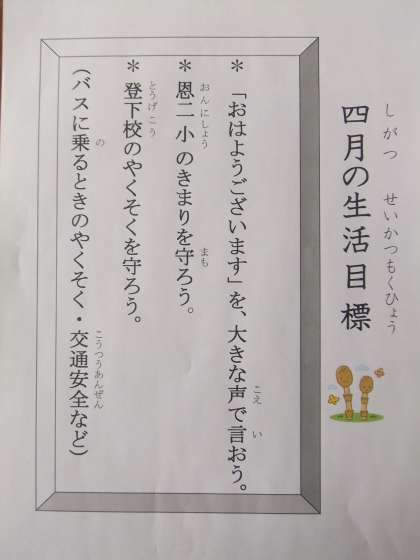 しがつ せいかつもくひょう
四月の生活目標
＊「おはようございます」を、大きな声で言おう。
こえ い
＊恩二小のきまりを守ろう。
おんにしょう まも
＊登下校のやくそくを守ろう。
とうげこう
（バスに乗るときのやくそく・交通安全など）
の こうつうあんぜん